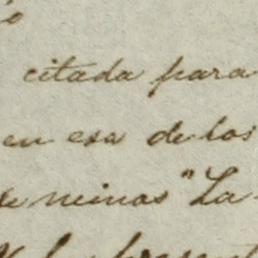 citada para
en esa de los
de minas "La